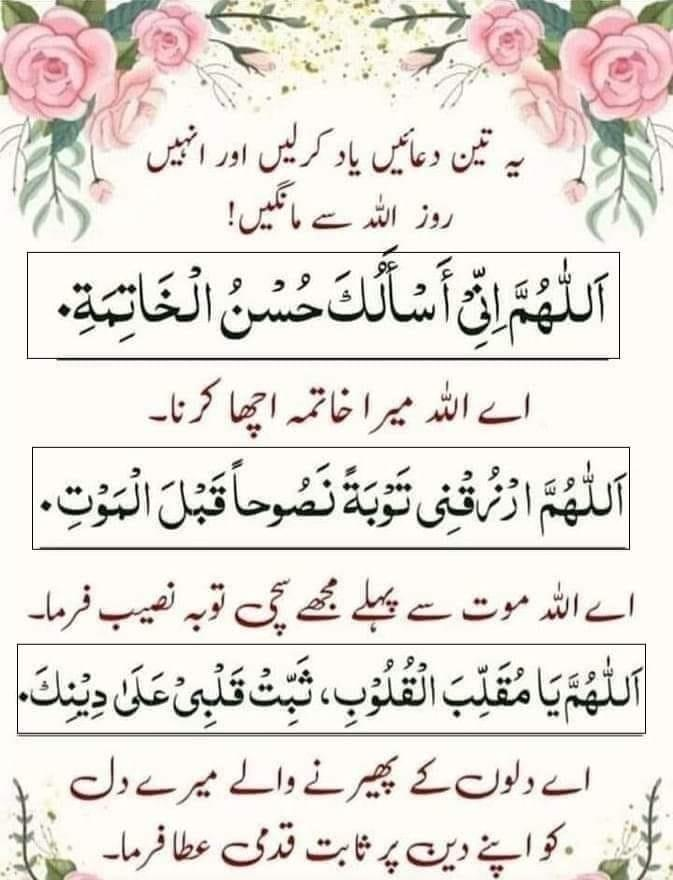 یہ تین دعائیں یاد کرلیں اور انہیں
روز اللہ سے مانگیں!
اَللّٰهُمَّ اِنِّیْ أَسْأَلُكَ حُسْنُ الْخَاتِمَةِ۰
اے اللہ میرا خاتمہ اچھا کرنا۔
اَللّٰهُمَّ ارْزُقْنِی تَوْبَةً نَصُوحاً قَبْلَ الْمَوْتِ۰
اے اللہ موت سے پہلے مجھے سچی توبہ نصیب فرما۔
اَللّٰهُمَّ یَا مُقَلِّبَ الْقُلُوْبِ، ثَبِّتْ قَلْبِیْ عَلَیٰ دِیْنِكَ۰
اے دلوں کے پھیرنے والے میرے دل
کو اپنے دین پر ثابت قدمی عطا فرما۔